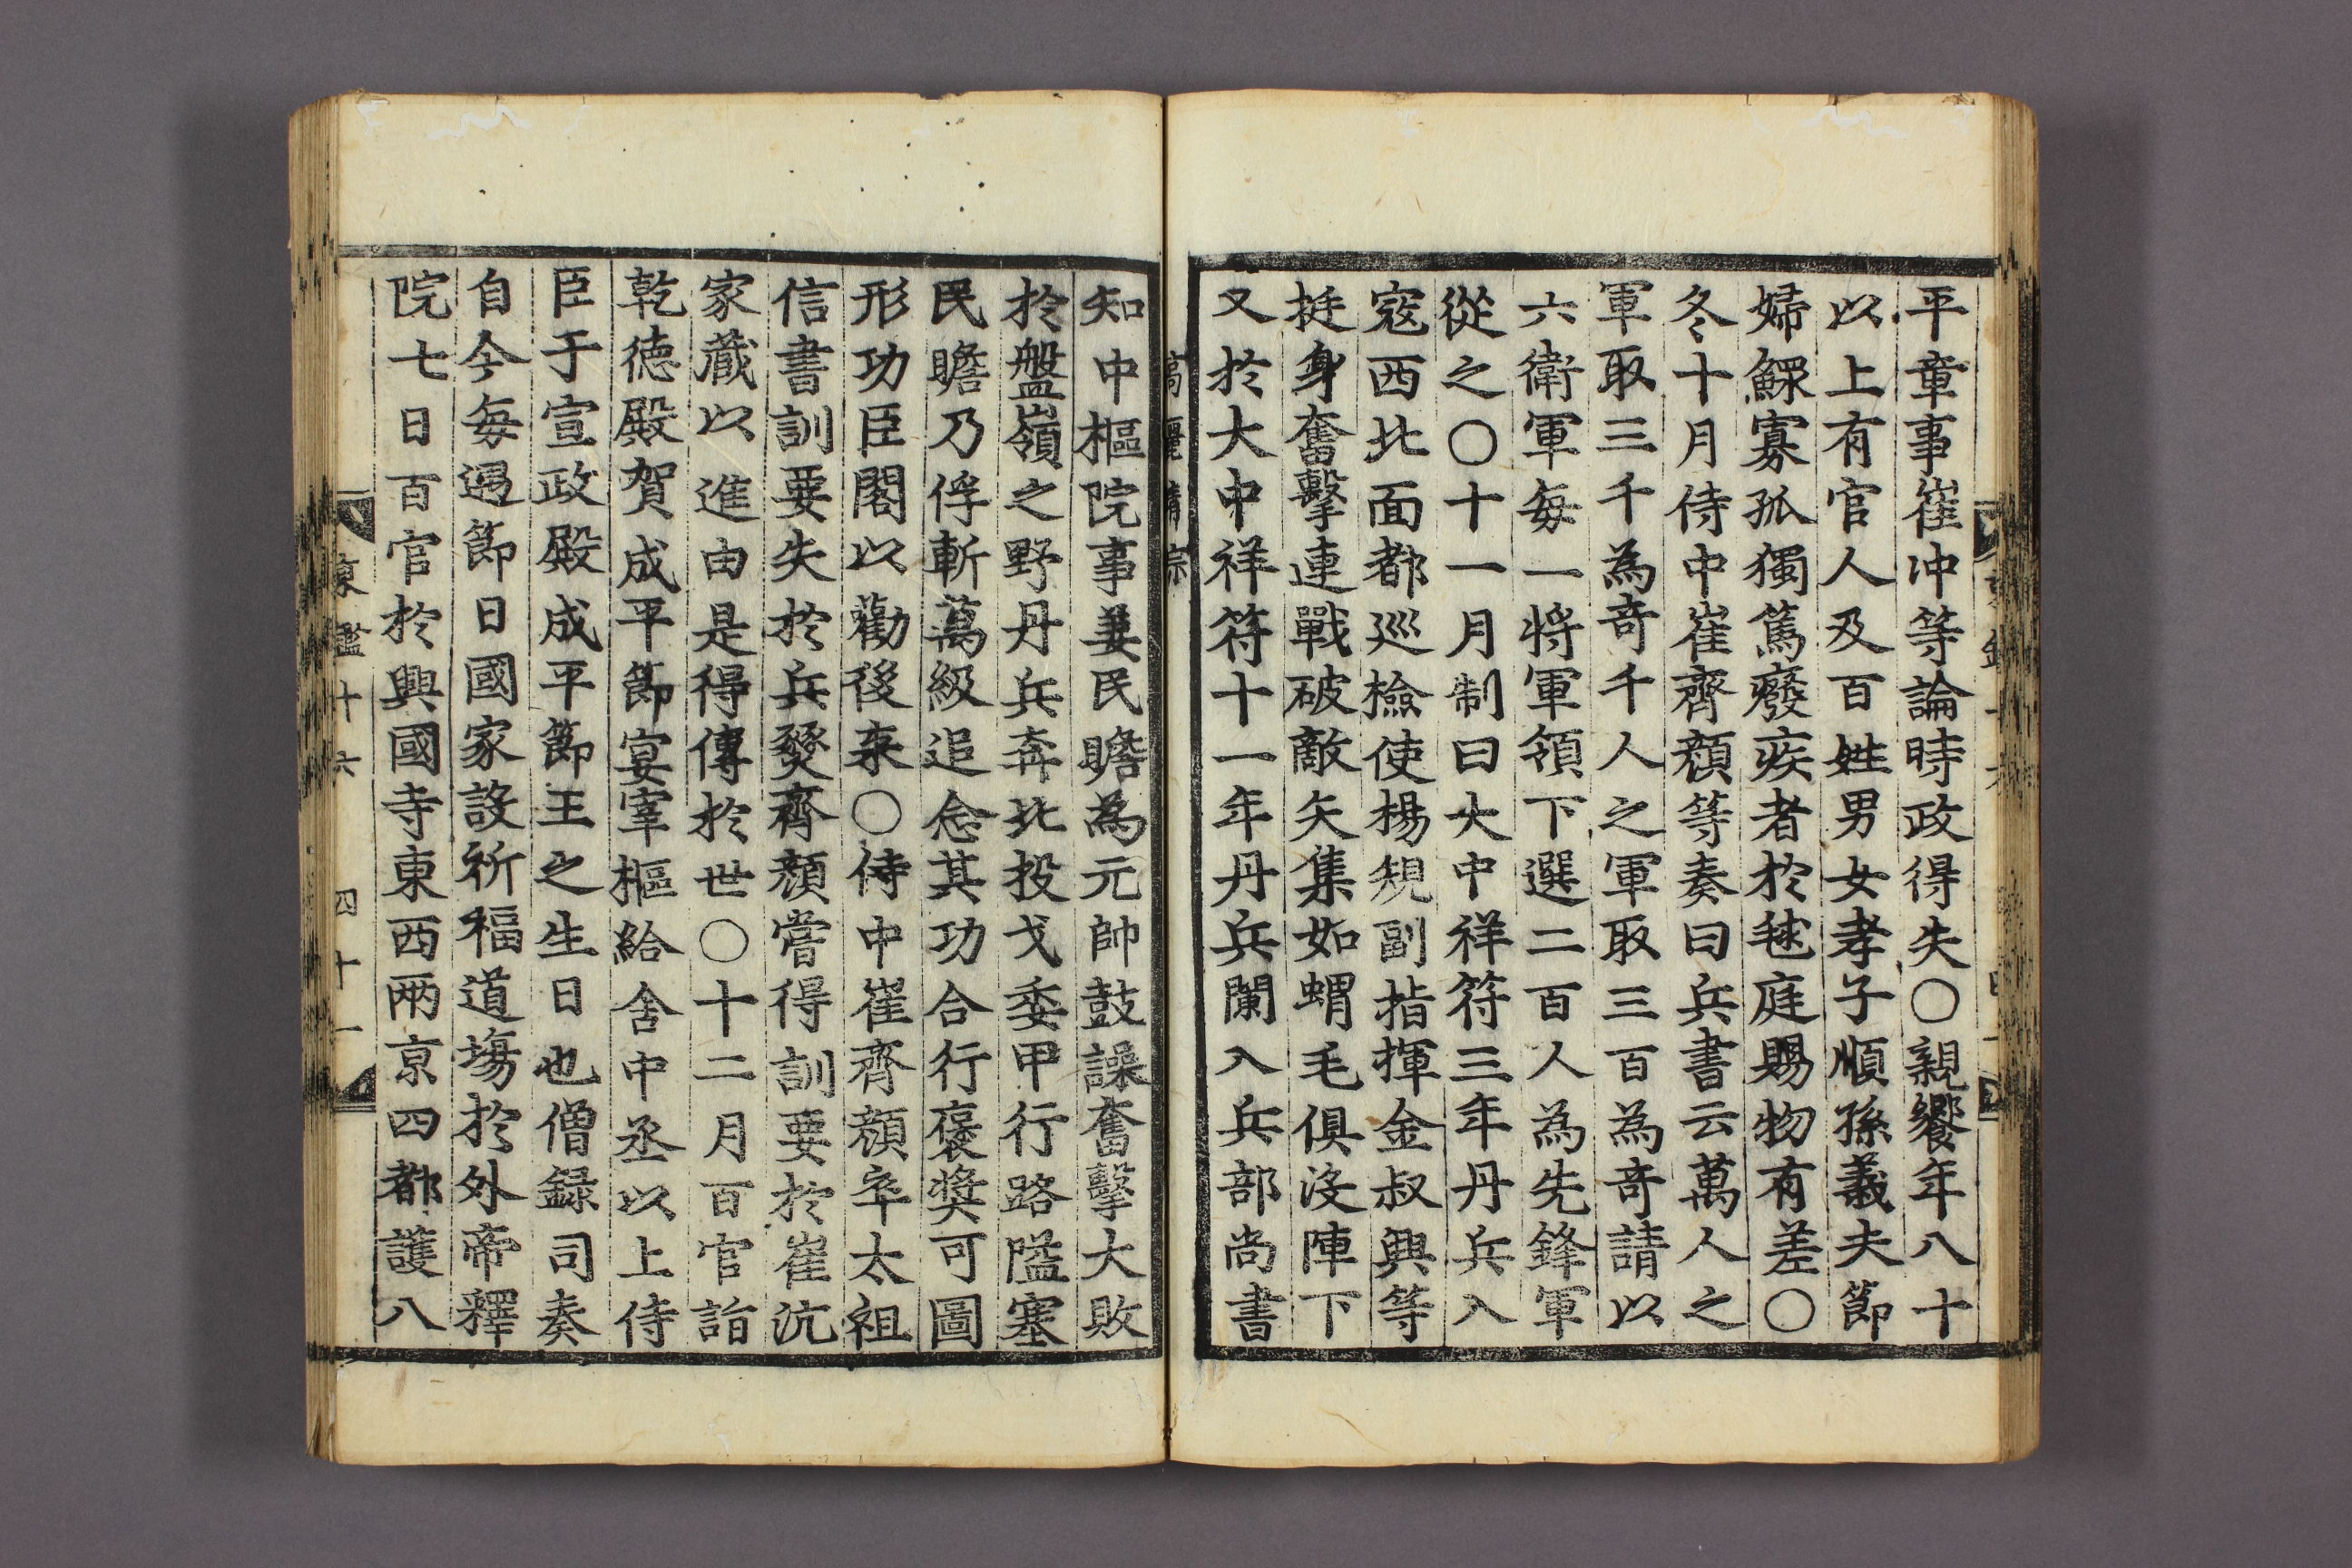 平章事崔冲等論時政得失〇親饗年八十
以上有官人及百姓男女孝子順孫義夫節
婦鰥寡孤獨篤癈疾者於毬庭賜物有差〇
冬十月侍中崔齊顔等奏曰兵書云萬人之
軍取三千為奇千人之軍取三百為奇請以
六衛軍每一將軍領下選二百人為先鋒軍
從之〇十一月制曰大中祥符三年丹兵入
寇西北面都巡檢使楊規副指揮金叔興等
挺身奮擊連戰破敵矢集如蝟毛俱沒陣下
又於大中祥符十一年丹兵闌入兵部尚書
高麗靖宗
知中樞院事姜民瞻為元帥鼓譟奮擊大敗
於盤嶺之野丹兵奔北投戈委甲行路隘塞
民瞻乃俘斬萬級追念其功合行褒奬可圖
形功臣閣以勸後来〇侍中崔齊顔卒太祖
信書訓要失於兵燹齊顔嘗得訓要於崔沆
家蔵以進由是得傳於世〇十二月百官詣
乾德殿賀成平節宴宰樞給舍中丞以上侍
臣于宣政殿成平節王之生日也僧録司奏
自今每遇節日國家設祈福道場於外帝釋
院七日百官於興國寺東西兩京四都護八
東鑑十六 四十一